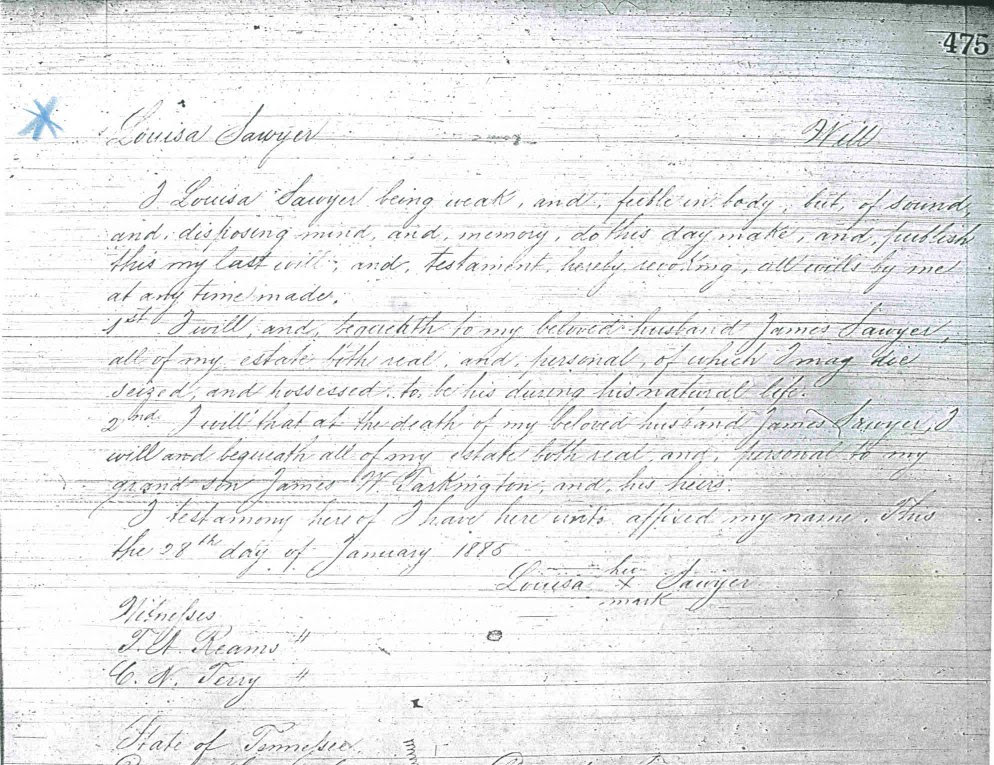 475
Louisa Sawyer Will
I Louisa Sawyer being weak, and, feeble in body, but, of sound,
and, disposing mind, and, memory, do this day make, and, publish
this my last will, and, testament, hereby revoking, all wills by me
at any time made.
1st I will, and, bequeath to my beloved husband James Sawyer,
all of my estate both real, and, personal, of which I may die
seized, and possessed. to be his during his natural life.
2nd I will that at the death of my beloved husband James Sawyer, I
will and bequeath all of my estate both real, and, personal to my
grand son James W. Tarkington, and, his heirs.
I testamony here of I have here unto affixed my name. This
the 28th day of January
her
Louisa X Sawyer
mark
Witnesses
Reams "
C. N. Terry "
State of Tennessee